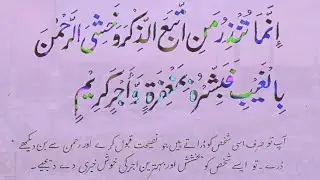 إِنَّمَا تُنذِرُ مَنِ اتَّبَعَ الذِّكْرَ وَخَشِيَ الرَّحْمٰنَ
بِالْغَيْبِ فَبَشِّرْهُ بِمَغْفِرَةٍ وَّأَجْرٍ كَرِيمٍ
آپ تو صرف اسی شخص کو ڈراتے ہیں جو نصیحت قبول کرے اور رحمن سے بن دیکھے
ڈرے۔ تو ایسے شخص کو بخشش اور بہترین اجر کی خوش خبری دے دیجیے۔